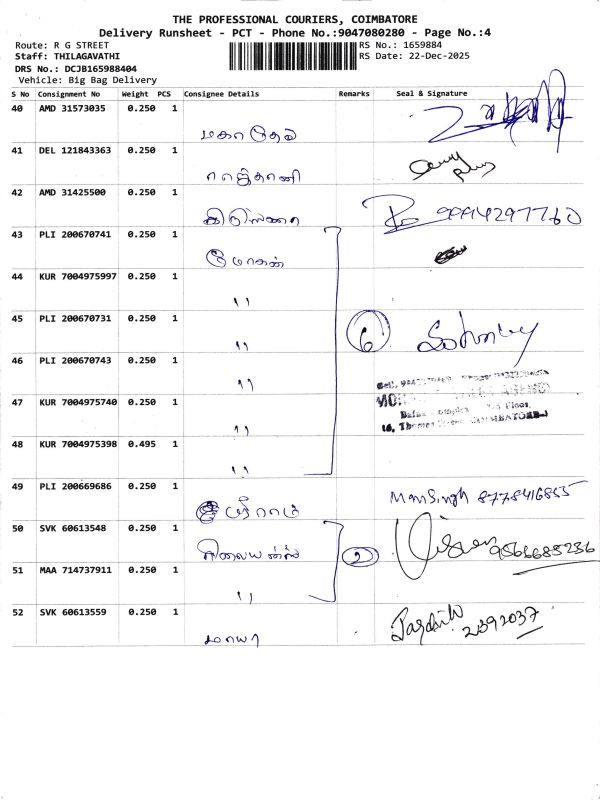 THE PROFESSIONAL COURIERS, COIMBATORE
Delivery Runsheet - PCT - Phone No.:9047080280 - Page No.:4
Route: R G STREET
RS No.: 1659884
Staff: THILAGAVATHI
RS Date: 22-Dec-2025
DRS No.: DCJB165988404
Vehicle: Big Bag Delivery
S No Consignment No Weight PCS Consignee Details Remarks Seal & Signature
40 AMD 31573035 0.250 1
மகாதேவ்
41 DEL 121843363 0.250 1
ராஜ்தானி
42 AMD 31425500 0.250 1
9994297760
43 PLI 200670741 0.250 1
மோகன்
44 KUR 7004975997 0.250 1
"
45 PLI 200670731 0.250 1
" 6
46 PLI 200670743 0.250 1
"
47 KUR 7004975740 0.250 1
"
48 KUR 7004975398 0.495 1
"
49 PLI 200669686 0.250 1
8778416855
50 SVK 60613548 0.250 1
2
51 MAA 714737911 0.250 1
"
52 SVK 60613559 0.250 1
மாயா 2392037